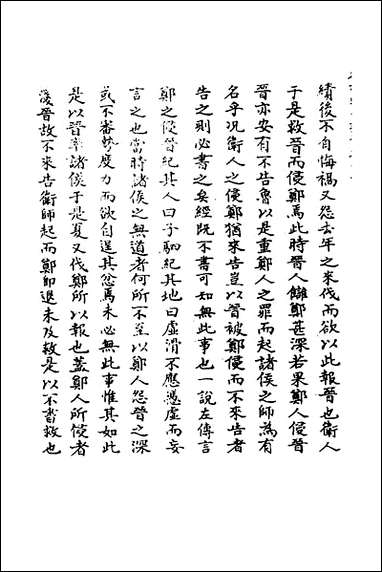 績後不自悔禍又怨去年之来伐而欲以此報晉也衛人
于是救晉而侵鄭焉此時晉人讎鄭甚深若果鄭人侵晉
晉亦安有不告魯以是重鄭人之罪而起諸侯之師為有
名乎况衛人之侵鄭猶来告豈以晉被鄭侵而不来告者
告之則必書之矣經既不書可知無此事也一說左傳言
鄭之侵晉紀其人曰子駟紀其地曰虛滑不應憑虛而妄
言之也當時諸侯之無道者何所不至以鄭人怨晉之深
或不審勢度力而欲自逞其忿焉未必無此事惟其如此
是以晉率諸侯于是夏又伐鄭所以報也蓋鄭人所侵者
後晉故不来告衛師起而鄭即退未及救是以不書救也